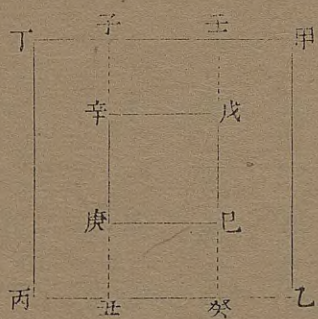 丁 子 壬 甲
辛 戊
庚 巳
丙 丑 癸 乙